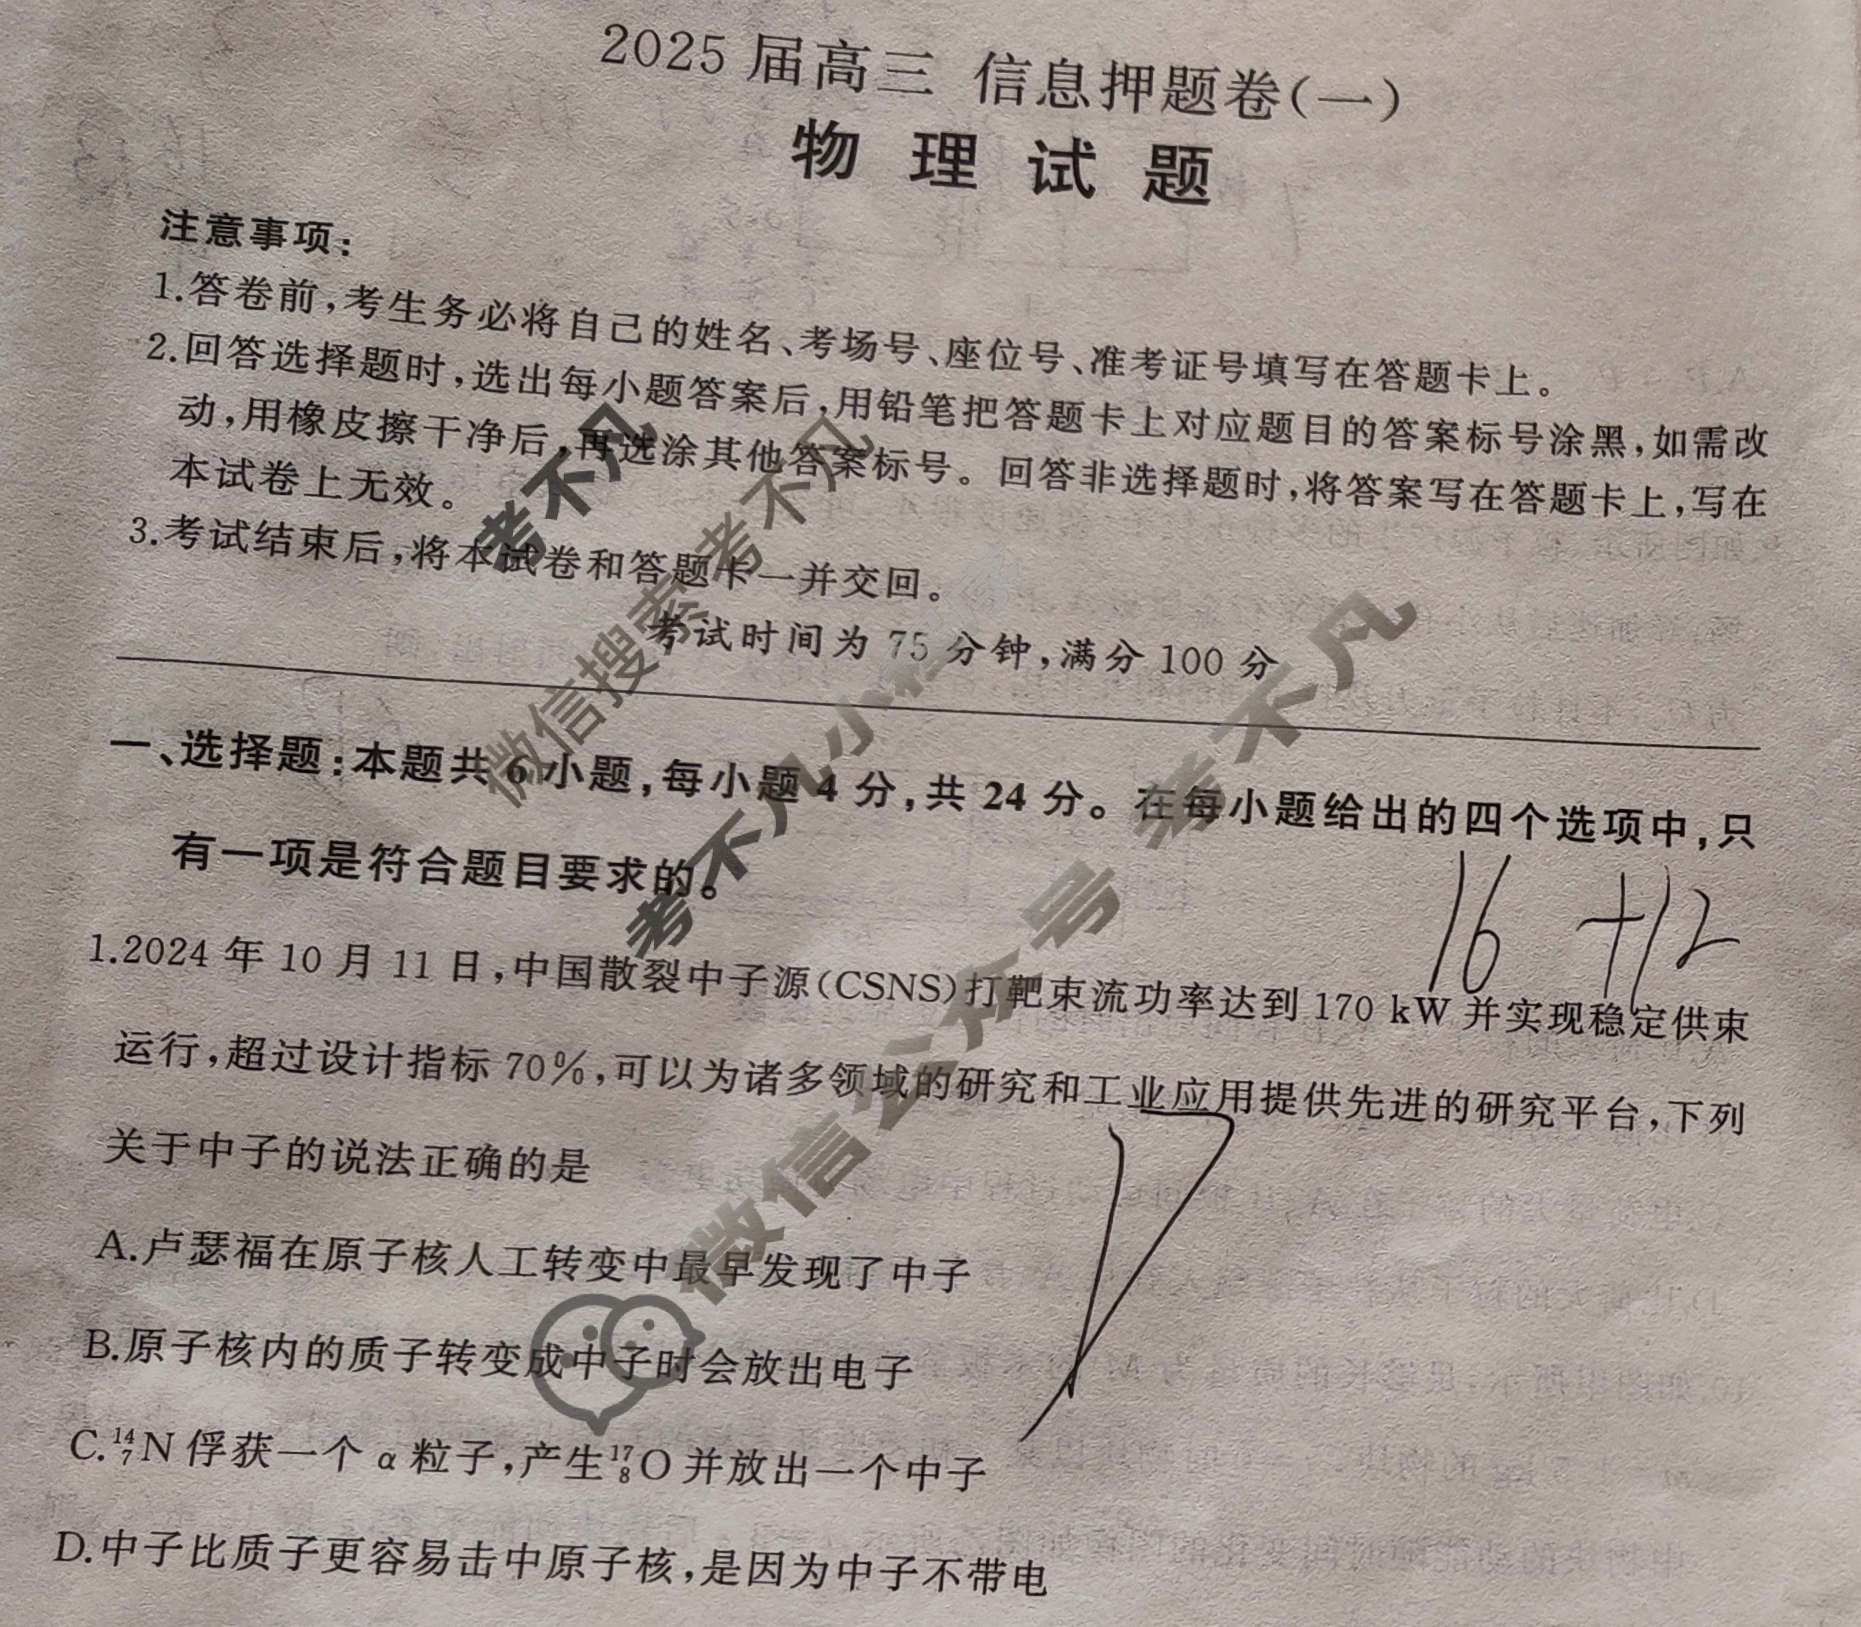 2025 届高三 信息押题卷(一)
物 理 试 题
注意事项:
1.答卷前,考生务必将自己的姓名、考场号、座位号、准考证号填写在答题卡上。
2.回答选择题时,选出每小题答案后,用铅笔把答题卡上对应题目的答案标号涂黑,如需改
动,用橡皮擦干净后,再选涂其他答案标号。回答非选择题时,将答案写在答题卡上,写在
本试卷上无效。
3.考试结束后,将本试卷和答题卡一并交回。
考试时间为 75 分钟,满分 100 分
一、选择题:本题共 6 小题,每小题 4 分,共 24 分。在每小题给出的四个选项中,只
有一项是符合题目要求的。
16 +12
1.2024 年 10 月 11 日,中国散裂中子源(CSNS)打靶束流功率达到 170 kW 并实现稳定供束
运行,超过设计指标 70%,可以为诸多领域的研究和工业应用提供先进的研究平台,下列
关于中子的说法正确的是
A.卢瑟福在原子核人工转变中最早发现了中子
B.原子核内的质子转变成中子时会放出电子
C.¹⁴₇N 俘获一个 α 粒子,产生¹⁷₈O 并放出一个中子
D.中子比质子更容易击中原子核,是因为中子不带电
考不凡
微信搜索 考不凡
考不凡小程序
微信公众号 考不凡